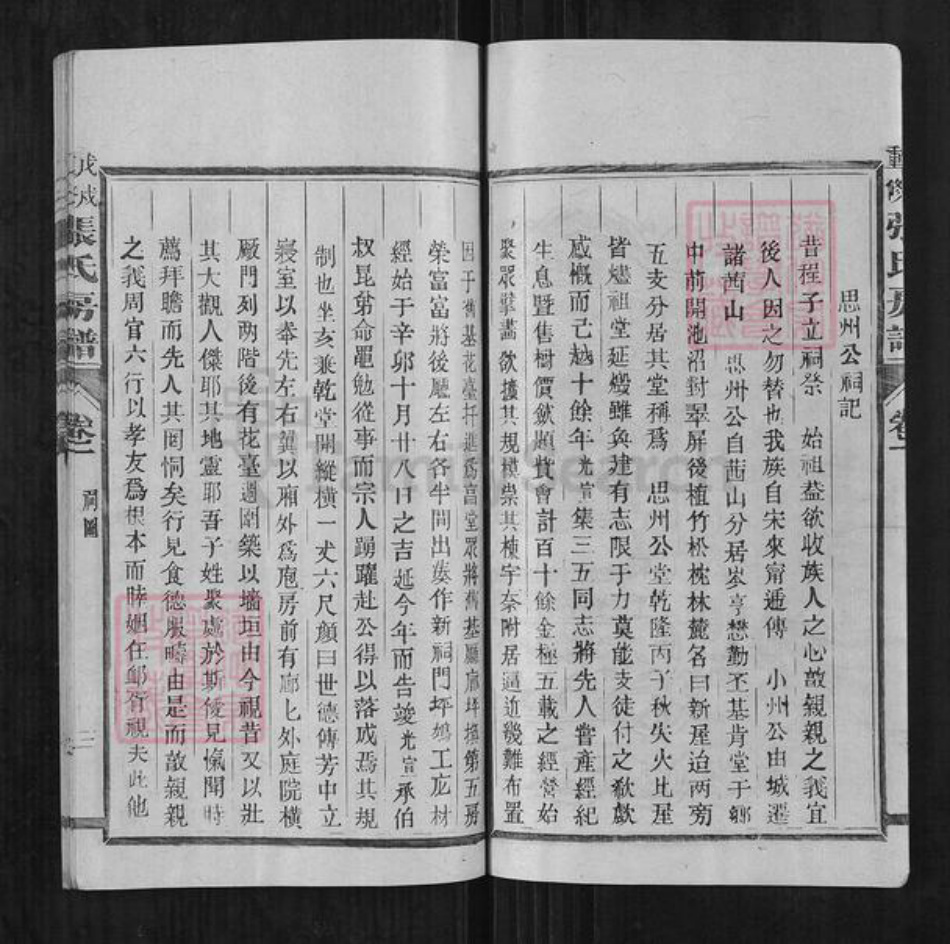 重修張氏房譜
卷一
思州公祠記
昔程子立祠祭 始祖益欲收族人之心敬親親之義宜
後人因之勿替也我族自宋來甯遞傳 小州公由城遷
諸茜山 思州公自茜山分居岑亨懋勤丕基肯堂于鄉
中前開池沼對翠屏後植竹松枕林麓名曰新屋迨两旁
五支分居其堂稱爲 思州公堂乾隆丙子秋失火比屋
皆燼祖堂延燬雖奐建有志限于力莫能支徒付之欷歔
感慨而己越十餘年光宣集三五同志將先人嘗產經紀
生息暨售樹價歛題貲會計百十餘金極五載之經營始
聚眾擘畫欲擴其規模崇其棟宇奈附居逼近幾難布置
因于舊基花臺扦進爲富堂眾將舊基廳廊坪換第五房
榮富富將後廳左右各半間出葵作新祠門坪鳩工庀材
經始于辛卯十月廿八日之吉延今年而告竣光宣承伯
叔昆弟命黽勉從事而宗人踴躍赴公得以落成焉其規
制也坐亥兼乾堂闊縱橫一丈六尺顏曰世德傳芳中立
寢室以奉先左右翼以厢外爲庖房前有廊匕外庭院橫
厰門列两階後有花臺週圍築以墻垣由今視昔又以壯
其大觀人傑耶其地靈耶吾子姓聚處於斯優見愾聞時
薦拜瞻而先人其罔恫矣行見食德服疇由是而敬親親
之義周官六行以孝友爲根本而睦姻任卹胥視夫此他
張氏房譜
卷一
祠圖